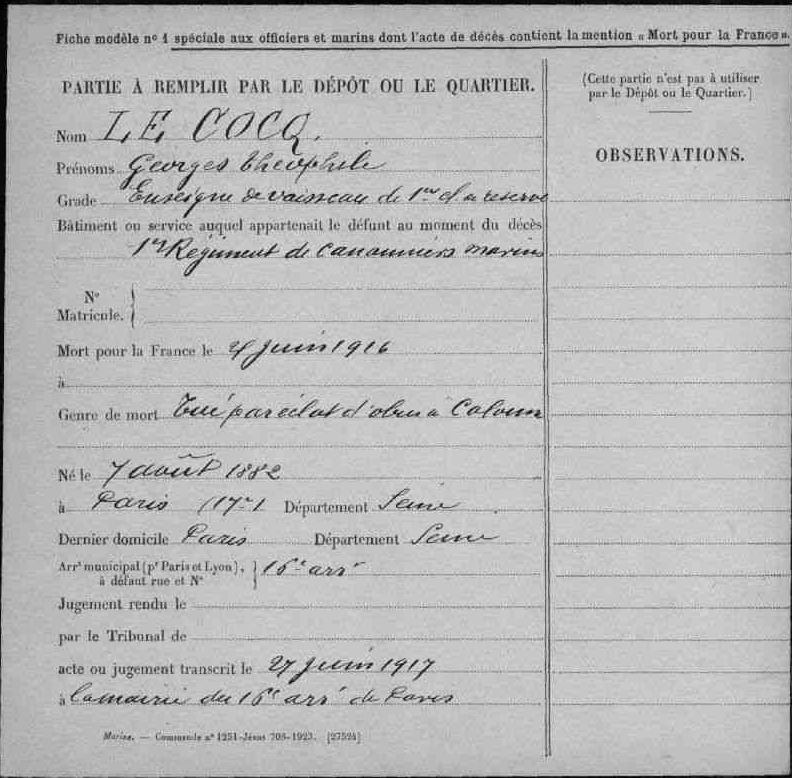 Fiche modèle n° 1 spéciale aux officiers et marins dont l'acte de décès contient la mention « Mort pour la France ».
PARTIE À REMPLIR PAR LE DÉPÔT OU LE QUARTIER.
Nom LE COCQ.
Prénoms Georges Théophile
Grade Enseigne de vaisseau de 1re cl. de réserve
Bâtiment ou service auquel appartenait le défunt au moment du décès
1er Régiment de Canonniers marins
N°
Matricule.
Mort pour la France le juin 1916
à
Genre de mort Tué par éclat d'obus à
Né le 7 août 1882
à Paris (17e) Département Seine
Dernier domicile Paris Département Seine
Arrt municipal (pr Paris et Lyon), 16e arrt
à défaut rue et N°
Jugement rendu le
par le Tribunal de
acte ou jugement transcrit le 27 juin 1917
à la mairie du 16e arrt de Paris
Marine. — Commande n° 1251-Jésus 708-1923. [27524]
(Cette partie n'est pas à utiliser
par le Dépôt ou le Quartier.)
OBSERVATIONS.